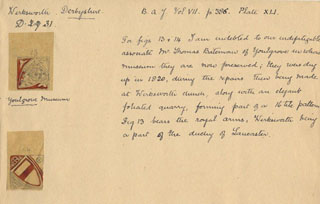 Wirksworth Derbyshire
D-2-9 31
B a J Vol VII. p 386. Plate XLI.
For figs 13 & 14 I am indebted to our indefatigable
associate Mr Thomas Bateman of Youlgrove in whose
museum they are now preserved; they were dug
up in 1820, during the repairs then being made
at Wirksworth church, along with an elegant
foliated quarry, forming part of a 16 tile pattern
Fig 13 bears the royal arms, Wirksworth being
a part of the duchy of Lancaster.
Youlgrove Museum